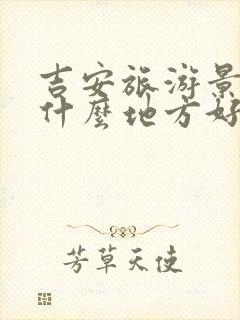 吉安旅游景
什麼地方好
芳草天使